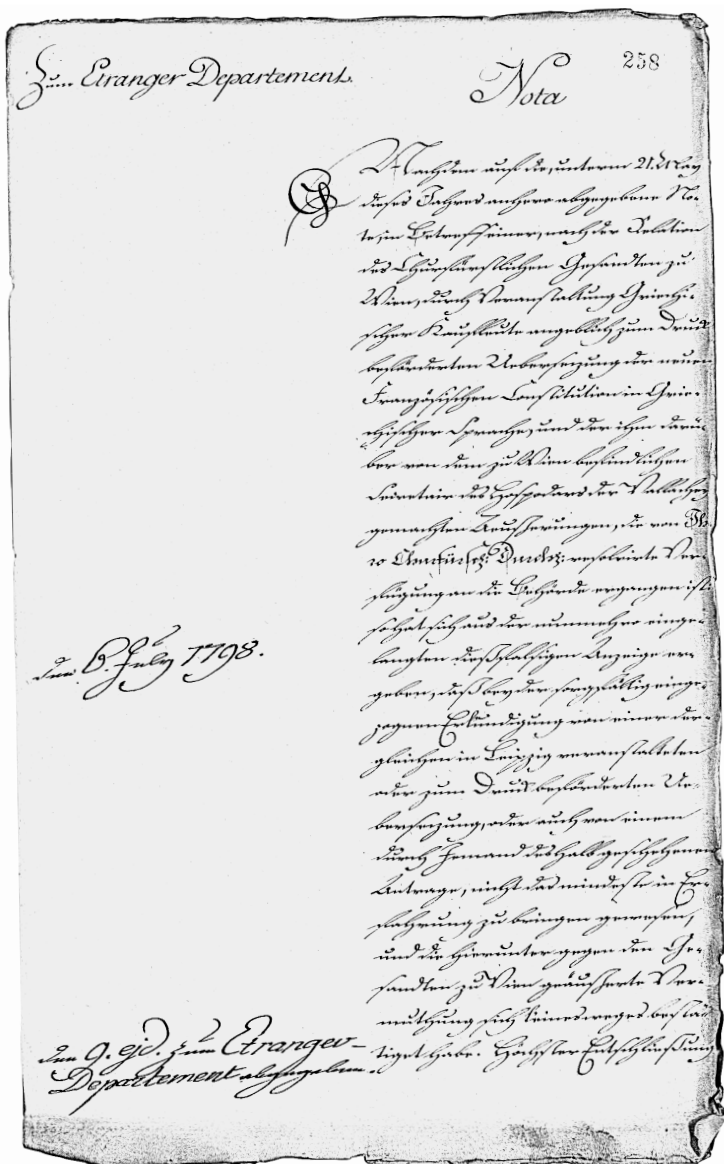 258
Zum Etranger Departement.
Nota
Nachdem auf die, unterm 21. May
dieses Jahres anhero abgegebene No-
te, in Betreff einer, nach der Relation
des Churfürstlichen Gesandten zu
Wien, durch Veranstaltung Griechi-
scher Kaufleute angeblich zum Druck
beförderten Uebersezung der neuen
Französischen Constitution in Grie-
chischer Sprache, und der ihm darü-
ber von dem zu Wien befindlichen
Secretair des Hospodars der Vallachey
gemachten Aeusserungen, die von Ih-
ro Churfürstl: Durchl: resolvirte Ver-
fügung an die Behörde ergangen ist:
so hat sich aus der nunmehro einge-
langten diesfalsigen Anzeige er-
geben, daß bey der sorgfältig einge-
zognen Erkundigung von einer der-
gleichen in Leipzig veranstalteten
oder zum Druck beförderten Ue-
bersezung, oder auch von einem
durch Jemand deshalb geschehenen
Antrage, nicht das mindeste in Er-
fahrung zu bringen gewesen,
und die hierunter gegen den Ge-
sandten zu Wien geäusserte Ver-
muthung sich keinesweges bestä-
tiget habe. Höchster Entschließung
den 6. July 1798.
den 9. ejd. zum Etranger-
Departement abgegeben.